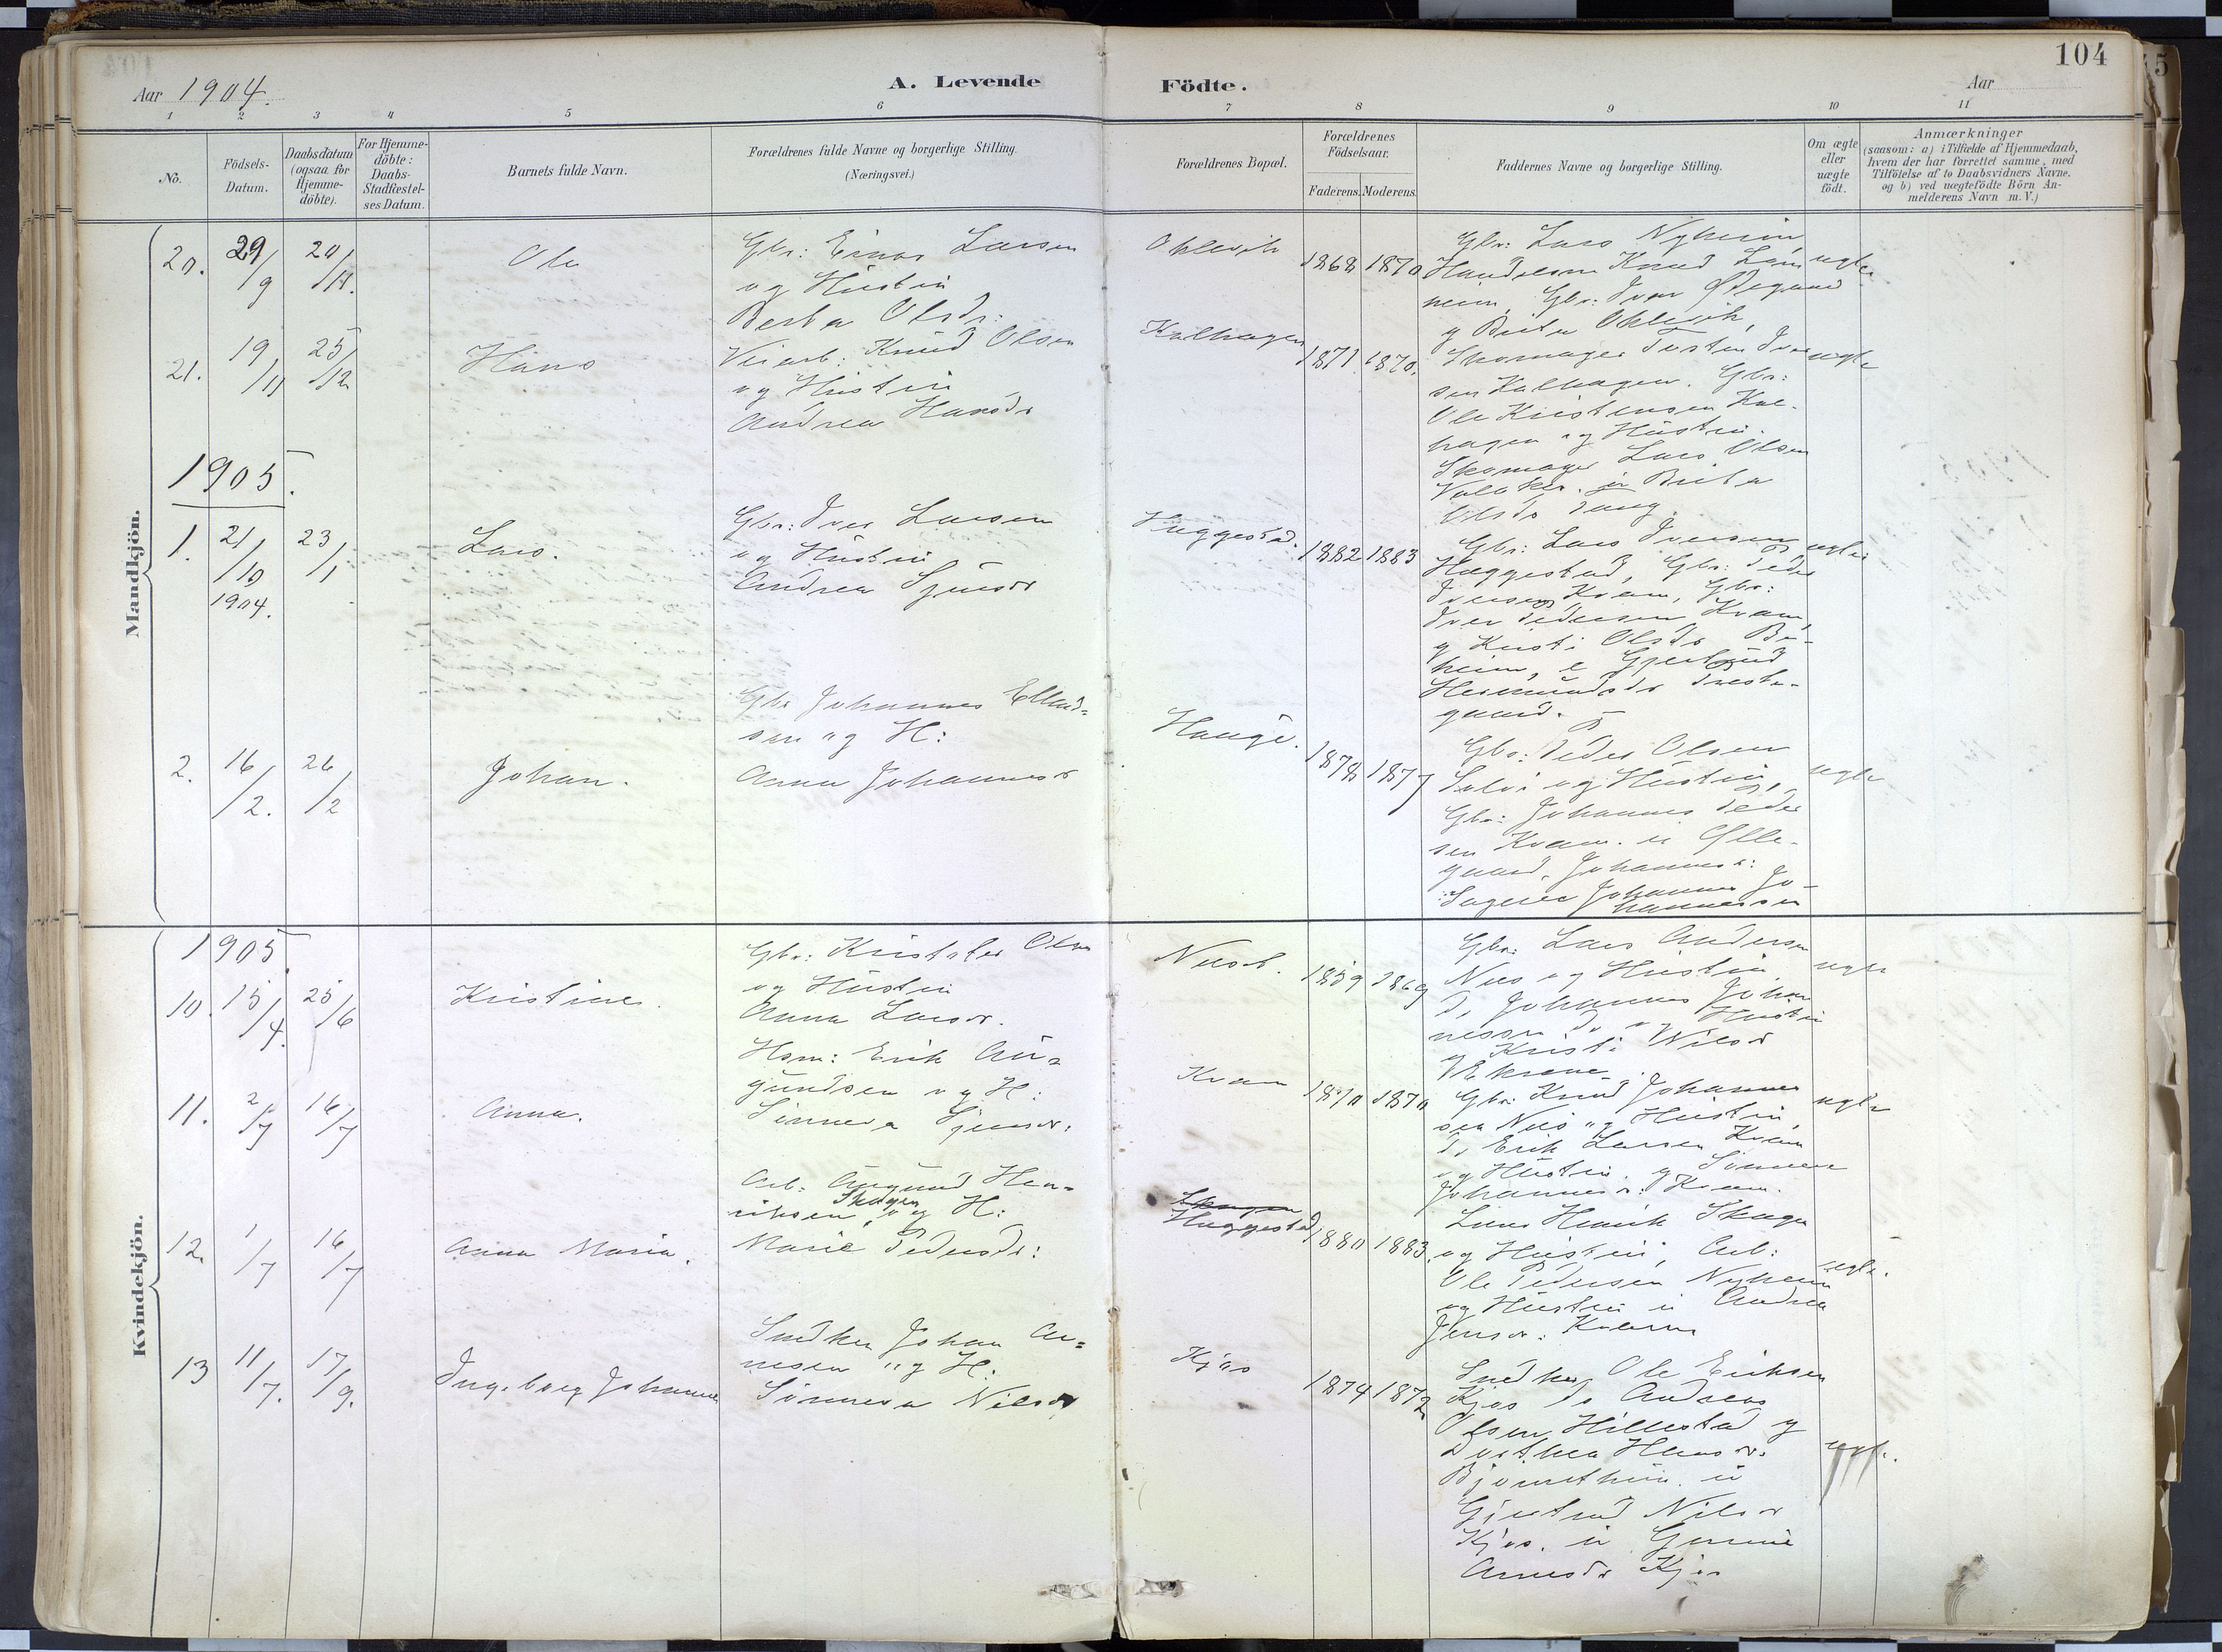 104
Aar 1904.
A. Levende Födte.
Aar
1 2 3 4 5 6 7 8 9 10 11
No.
Födsels-Datum.
Daabsdatum (ogsaa for Hjemme-döbte).
For Hjemme-döbte: Daabs-Stadfæstel-ses Datum.
Barnets fulde Navn.
Forældrenes fulde Navne og borgerlige Stilling.
(Næringsvei.)
Forældrenes Bopæl.
Forældrenes Födselsaar.
Faderens. Moderens.
Faddernes Navne og borgerlige Stilling.
Om ægte eller uægte födt.
Anmærkninger
(saasom: a) i Tilfælde af Hjemmedaab,
hvem der har forrettet samme, med
Tilföielse af to Daabsvidners Navne,
og b) ved uægtefödte Börn An-
melderens Navn m. V.)
Mandkjön.
20. 29/9 20/11. Ole
Gbr: Einar Larsen
og Hustru
Berta Olsdr:
1868 1870
Gbr: Lars Nyheim
Handelsm Knud
Gbr: Iver Ødegaard
ægte
21. 19/11 25/12 Hans
Veiarb: Knud Olsen
og Hustru
Andrea Hansdr
Kalhagen
1871 1870.
Skomager Torsten Iver
sen Kalhagen. Gbr:
Ole Kristensen Kal-
hagen og Hustru.
Skomager Lars Olsen
Olsdr Tang
ægte
1905.
1. 21/10 1904. 23/1 Lars.
Gbr: Iver Larsen
og Hustru
Andrea Sjursdr
Huggestad.
1882 1883
Gbr: Lars Iversen
Huggestad, Gbr: Peder
Iversen Kvam, Gbr:
Iver Pedersen Kvam,
g Kristi Olsdr Bu-
heim, Gjertrud
gaard.
ægte
2. 16/2. 26/2 Johan.
Gbr Johannes Ellend=
sen og H:
Anna Johannesdr
Hauge.
1878 1877
Gbr: Peder Olsen
og Hustru,
Gbr: Johannes Peder
sen Kvam.
gaard. Johannesdr:
Johannes Jo-
hannessen
ægte
Kvindekjön.
1905
10. 15/4. 25/6 Kristine.
Gbr: Kristofer Olsen
og Hustru
Anna Larsdr.
1859 1869
Gbr: Lars Andersen
og Hustru
Do Johannes Johan
nessen Do og Hustru
Kristi Nilsdr
ægte
11. 2/7 16/7 Anna.
Hsm: Erik An=
gundsen og H:
Sinneva Sjursdr:
Kvam
1870 1870
Gbr: Knud Johannes
sen og Hustru
Do Erik Larsen Kvam
og Hustru. g Sinneva
Johannesdr: Kvam.
ægte
12. 1/7 16/7 Anna Maria.
Arb: Angund Hen=
riksen Skagen og H:
Marie Pedersdr:
Skagen
Huggestad
1880 1883.
Henrik Skagen
og Hustru, Arb:
Ole Pedersen Nyheim
og Hustru Andrea
Jensdr:
ægte.
13 11/7. 17/9. Ingeborg Johanne
Snedker Johan Ar=
nesen og H:
Sinneva Nilsdr
Kjos
1874 1872
Snedker Ole Eriksen
Kjos Do Andreas
Olsen Hillestad g
Dorthea Hansdr:
Gjertrud Nilsdr
Kjos.
Arnesdr Kjos
ægte.